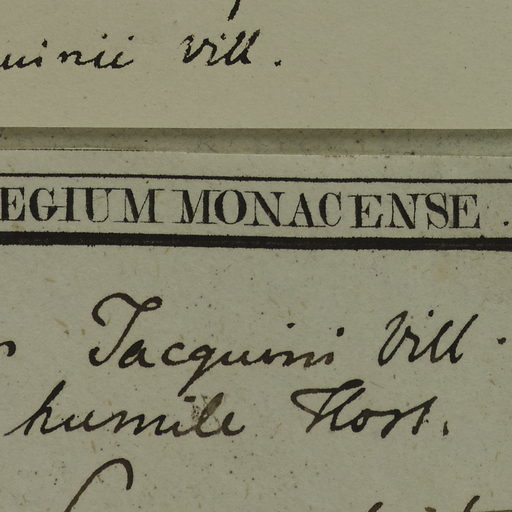 uinii Vill.
EGIUM MONACENSE.
Jacquini Vill.
humile Host.